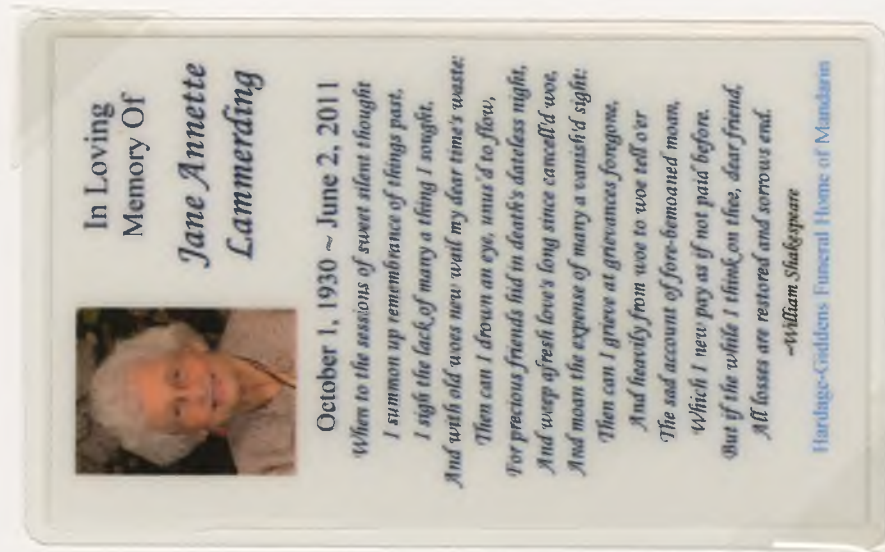 In Loving
Memory Of
Jane Annette
Lammerding
October 1, 1930 ~ June 2, 2011
When to the sessions of sweet silent thought
I summon up remembrance of things past,
I sigh the lack of many a thing I sought,
And with old woes new wail my dear time's waste:
Then can I drown an eye, unus'd to flow,
For precious friends hid in death's dateless night,
And weep afresh love's long since cancell'd woe,
And moan the expense of many a vanish'd sight:
Then can I grieve at grievances foregone,
And heavily from woe to woe tell o'er
The sad account of fore-bemoaned moan,
Which I new pay as if not paid before.
But if the while I think on thee, dear friend,
All losses are restored and sorrows end.
~William Shakespeare
Hardage-Giddens Funeral Home of Mandarin